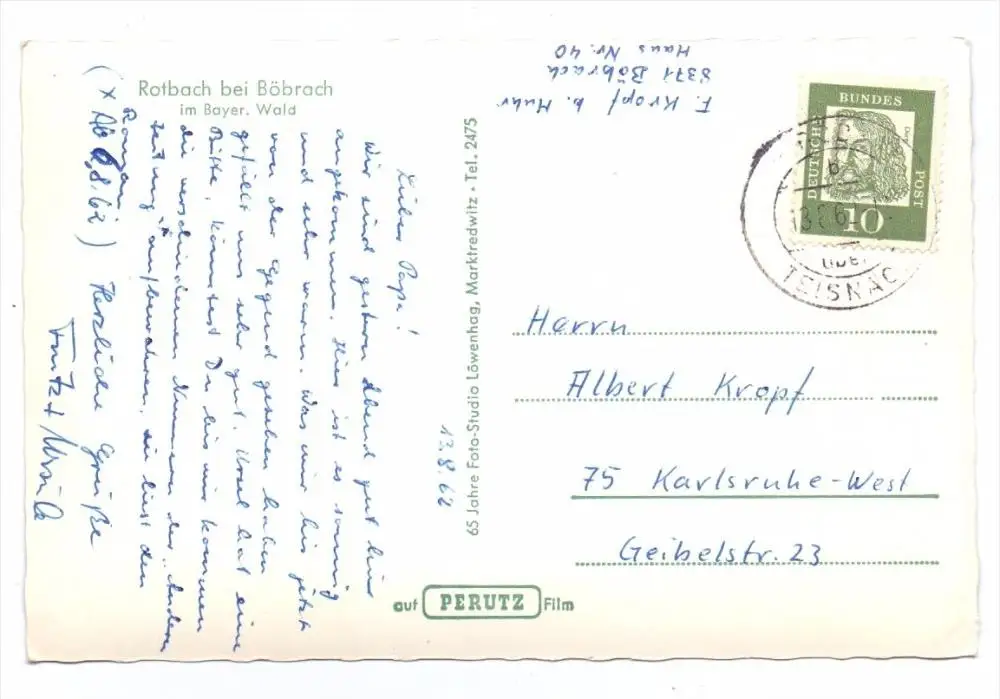 Rotbach bei Böbrach
im Bayer. Wald
Lieber Papa!
Wir sind gestern Abend gut hier
angekommen. Hier ist es sonnig
und sehr warm. Was wir bis jetzt
von der Gegend gesehen haben
gefällt uns sehr gut. Ursel hat eine
Bitte, könntest Du bis wir kommen
die verschiedenen Nummern der „Anderen
Zeitung" x aufbewahren, sie liest den
Roman.
(x Ab 8.62) Herzliche Grüße
Fritz + Ursula
13.8.62
65 Jahre Foto-Studio Löwenhag, Marktredwitz • Tel. 2475
auf PERUTZ Film
F. Kropf b.
8371 Böbrach
Haus Nr. 40
DEUTSCHE BUNDES POST
10
b
TEISNAC
Herrn
Albert Kropf
75 Karlsruhe-West
Geibelstr. 23